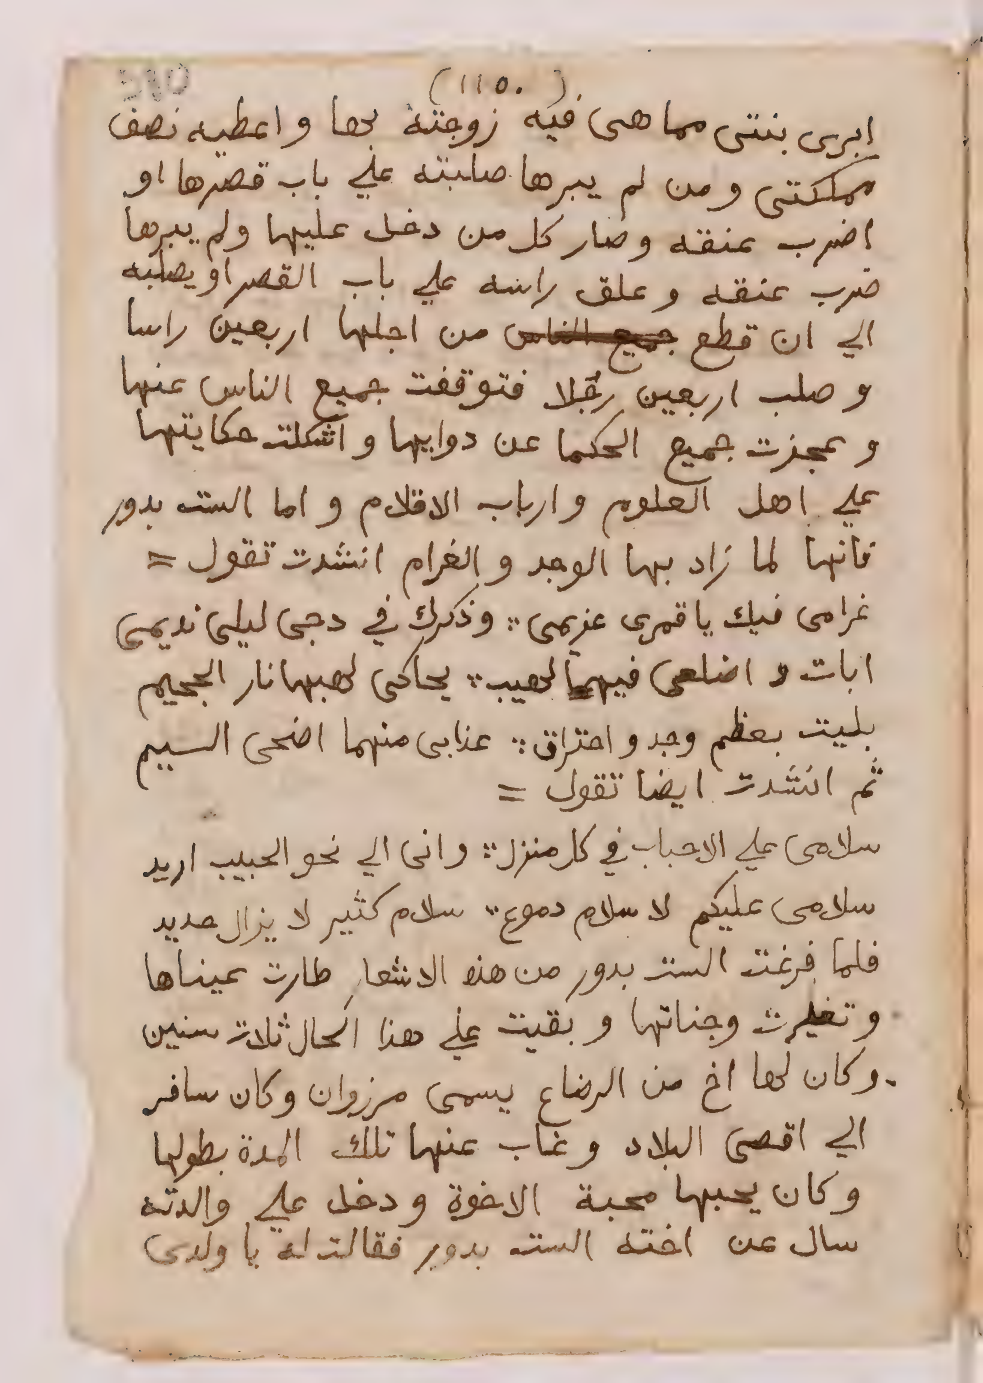 (١١٥٠)
ابرى بنتى مما هى فيه زوجته بها واعطيه نصف
مملكتى ومن لم يبرها صلبته علي باب قصرها او
اضرب عنقه وصار كل من دخل عليها ولم يبرها
ضرب عنقه وعلق راسه علي باب القصر او يصلبه
الي ان قطع جميع الناس من اجلها اربعين راسا
و صلب اربعين رجلا فتوقفت جميع الناس عنها
و عجزت جميع الحكما عن دوايها واشكلت حكايتها
علي اهل العلوم وارباب الاقلام و اما الست بدور
فانها لما زاد بها الوجد و الغرام انشدت تقول =
غرامى فيك يا قمرى غريمى :: وذكرك في دجى ليلى نديمى
ابات و اضلعى فيها لهيب :: يحاكى لهبها نار الجحيم
بليت بعظم وجد و احتراق :: عذابى منهما اضحى السيم
ثم انشدت ايضا تقول =
سلامى علي الاحباب في كل منزل :: وانى الي نحو الحبيب اريد
سلامى عليكم لا سلام دموع :: سلام كثير لا يزال جديد
فلما فرغت الست بدور من هذه الاشعار طارت عيناها
و تغيرت وجناتها و بقيت علي هذا الحال ثلاث سنين
وكان لها اخ من الرضاع يسمى مرزوان وكان سافر
الي اقصى البلاد و غاب عنها تلك المدة بطولها
وكان يحبها محبة الاخوة ودخل علي والدته
سال عن اخته الست بدور فقالت له يا ولدى